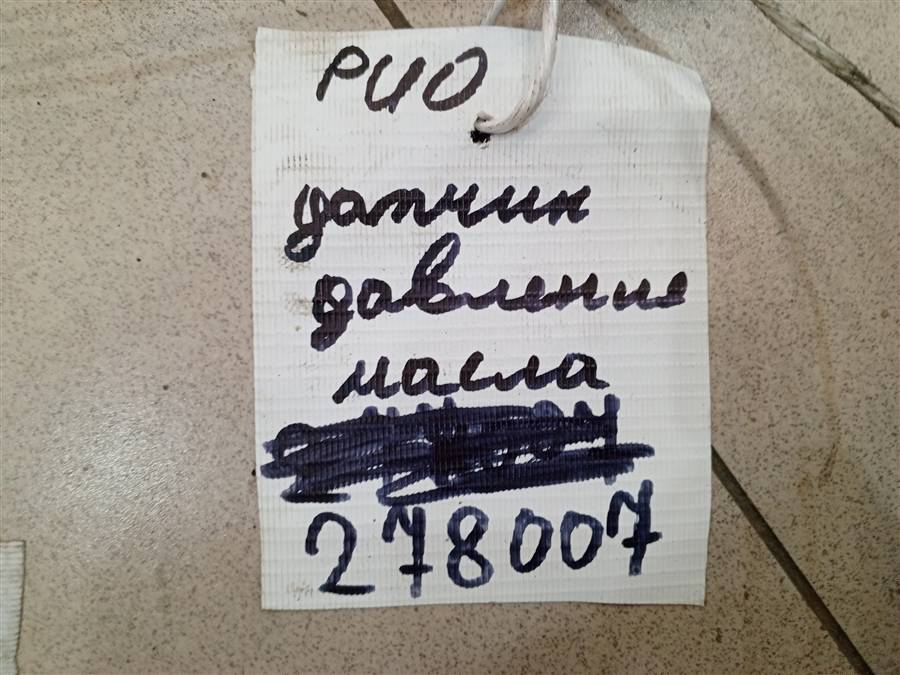 РИО
датчик
давление
масла
278007